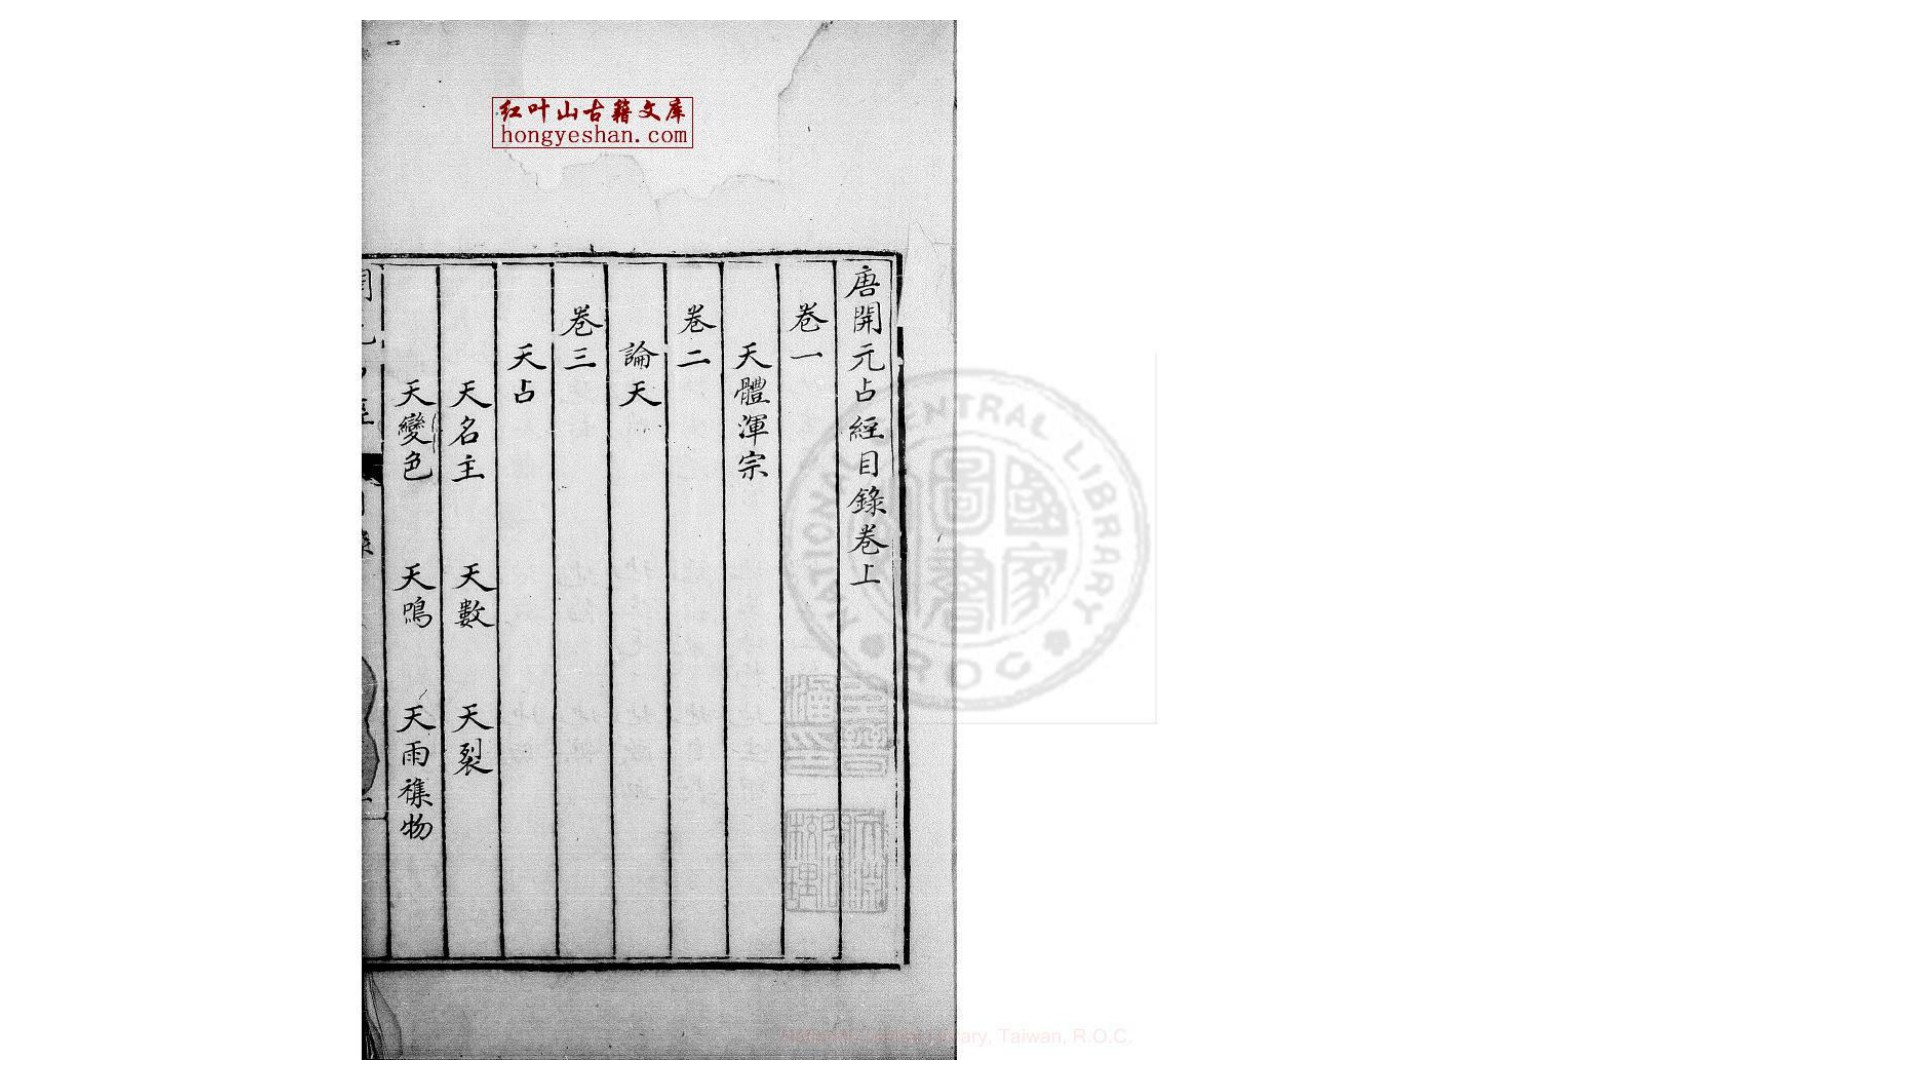 红叶山古籍文库
hongyeshan.com
唐開元占經目錄卷上
卷一
天體渾宗
卷二
論天
卷三
天占
天名主 天數 天裂
天變色 天鳴 天雨襍物
NATIONAL CENTRAL LIBRARY
國家圖書
ROC
National Central Library, Taiwan, R.O.C.